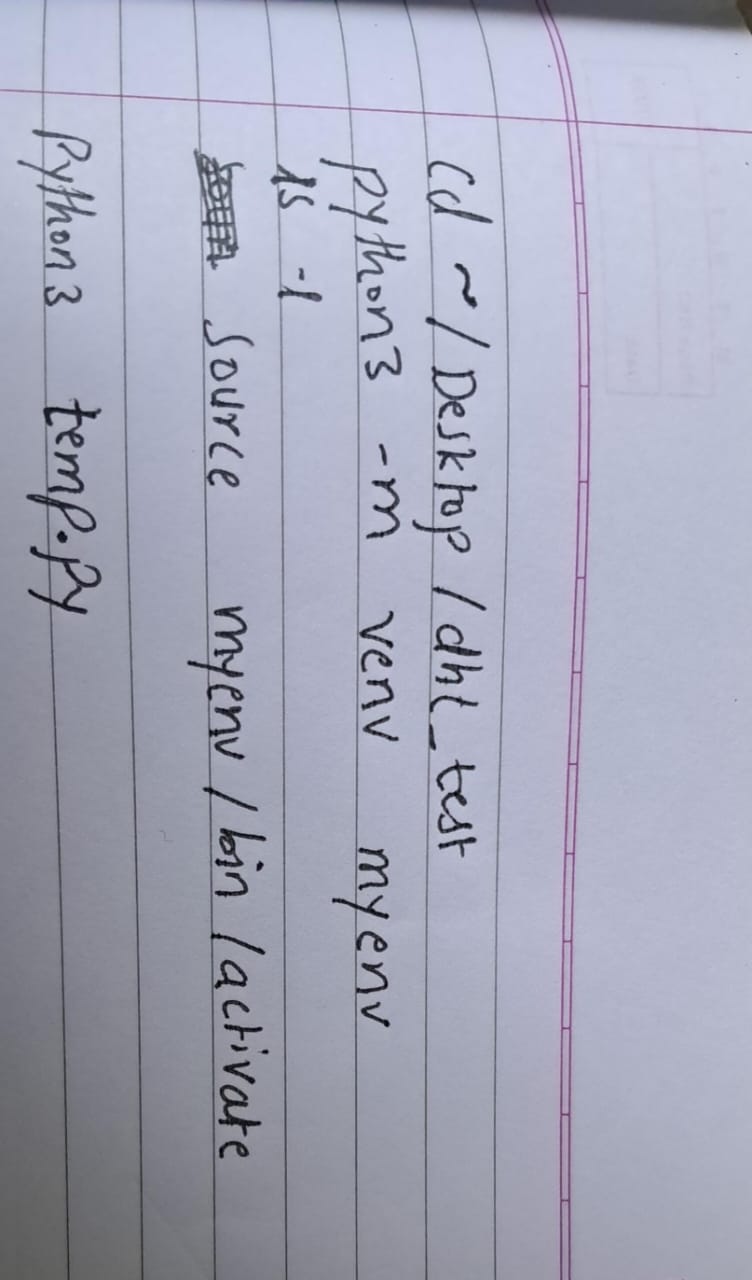 cd ~/Desktop/dht_test
python3 -m venv myenv
ls -l
source myenv/bin/activate
Python3 temp.py